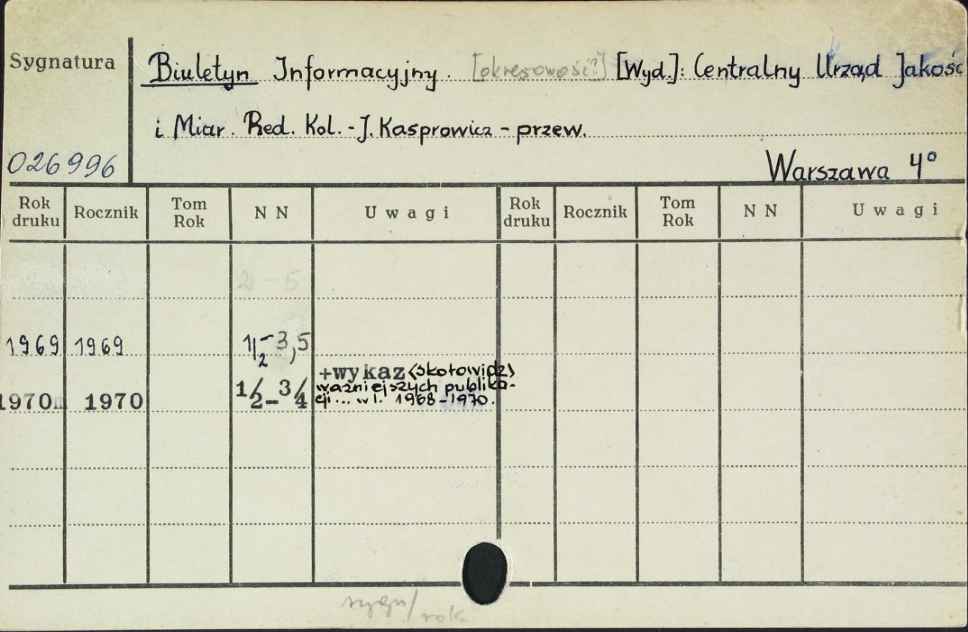 Sygnatura
Biuletyn Informacyjny. [okresowość?] [Wyd.]: Centralny Urząd Jakośc
i Miar. Red. Kol. - J. Kasprowicz - przew.
026996
Warszawa 4°
Rok druku Rocznik Tom Rok N N Uwagi Rok druku Rocznik Tom Rok N N Uwagi
2 - 5
1969 1969 1/2-3,5
1970 1970 1/2-3/4 +wykaz (skorowidz)
ważniejszych publika-
cji... w l. 1968-1970.
sygn/
rok